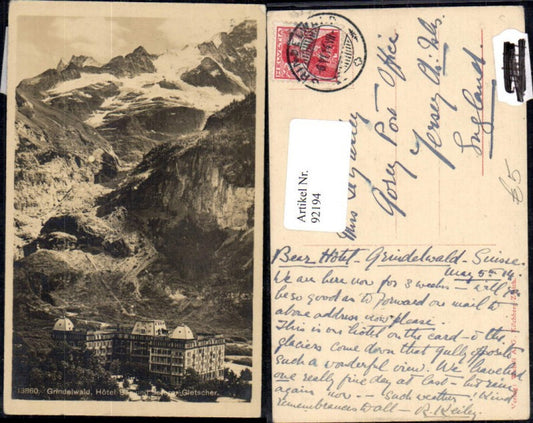 13860. Grindelwald, Hôtel Gletscher.
HELVETIA
Artikel Nr.
92194
Miss
Gorey Post Office
Jersey
England
£5
Bear Hotel - Grindelwald - Suisse.
May 5th 14.
We are here now for 3 weeks - will you
be so good as to forward our mail to
above address now please.
This is our hotel on the card - & the
glaciers come down that gully opposite
Such a wonderful view. We travelled
one really fine day at last - but rain
again now - Such weather! Kind
remembrances to all - R.